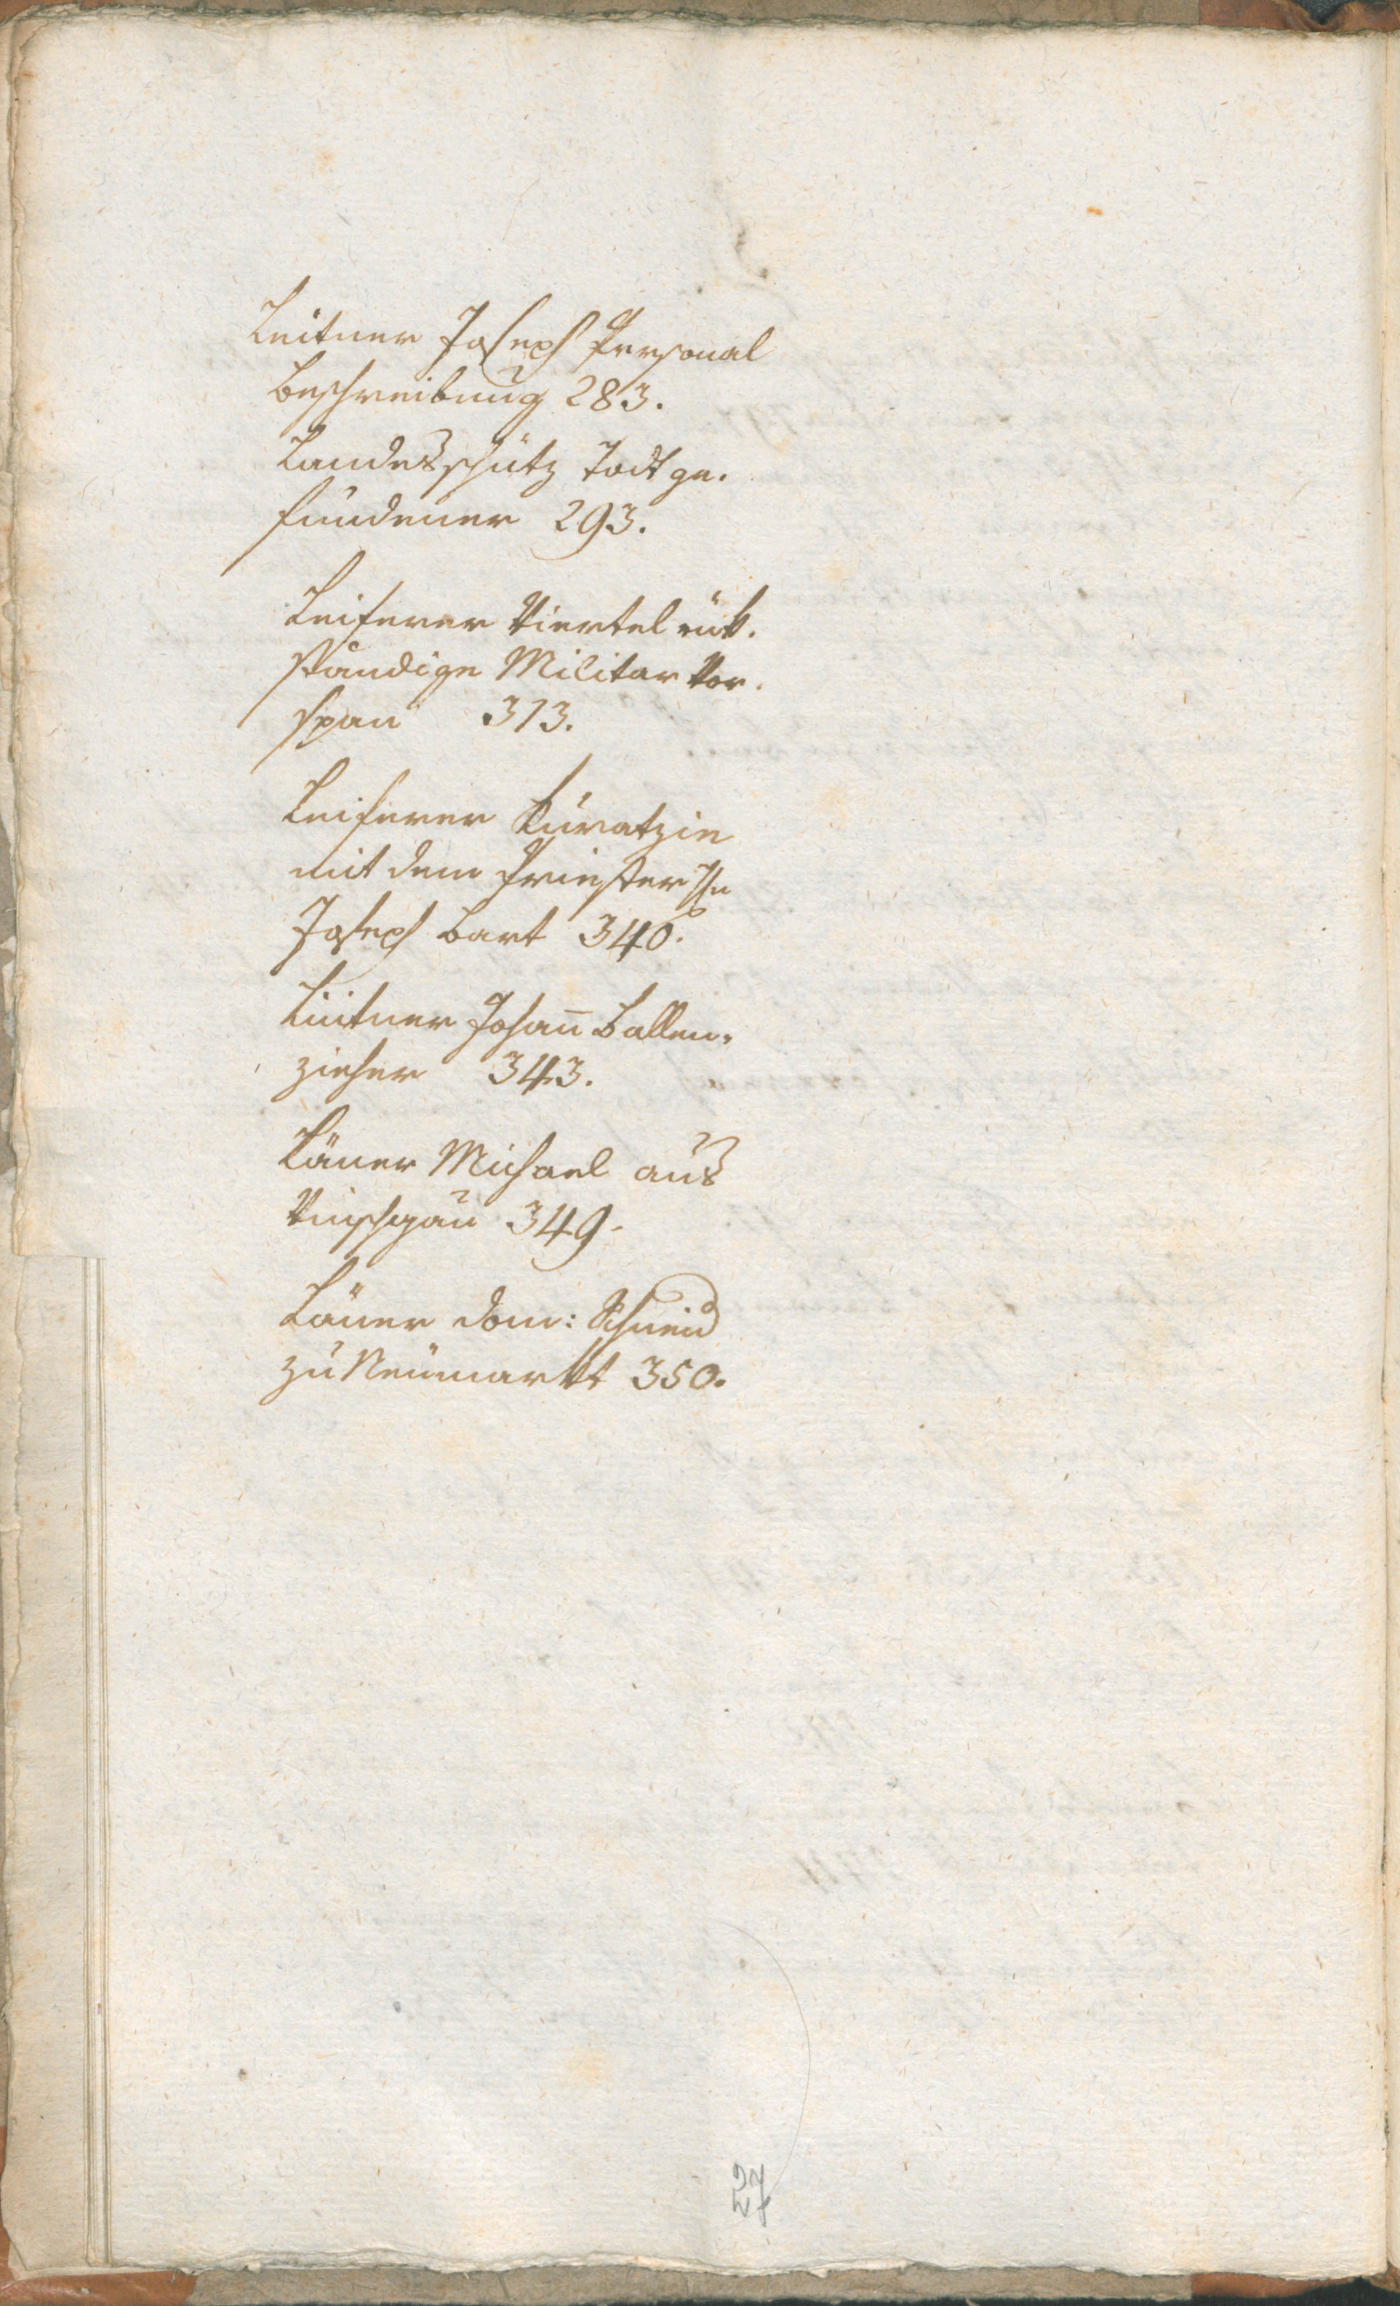 Leitner Joseph Personal
Beschreibung 283.
Landesschütz Todt ge.
fundener 293.
Leiferer Viertel rük.
ständige Militar Vor.
span 313.
Leiferer Curatzie
mit dem Priester Hn
Joseph Bart 340.
Leitner Johan̄ Ballen„
zieher 343.
Läner Michael aus
Vinschgau 349.
Läner Dom: Schneid
zu Neumarkt 350.
27